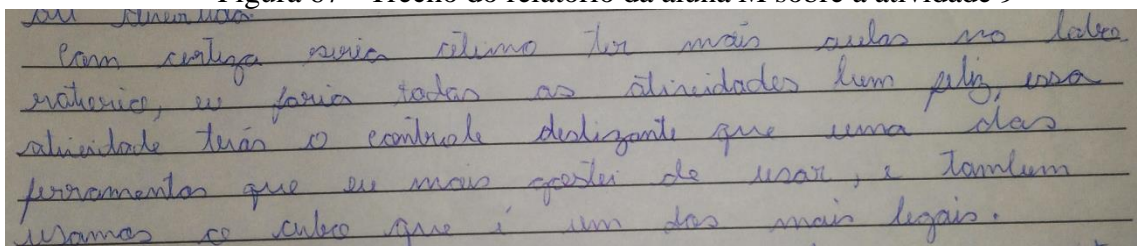 Figura 67 – Trecho do relatório da aluna M sobre a atividade 9
ou
Com certeza seria otimo ter mais aulas no labo
ratorio, eu faria todas as atividades bem feliz, essa
atividade o controle deslizante que uma das
ferramentas que eu mais gostei de usar, e tambem
usamos o cubo que é um dos mais legais.